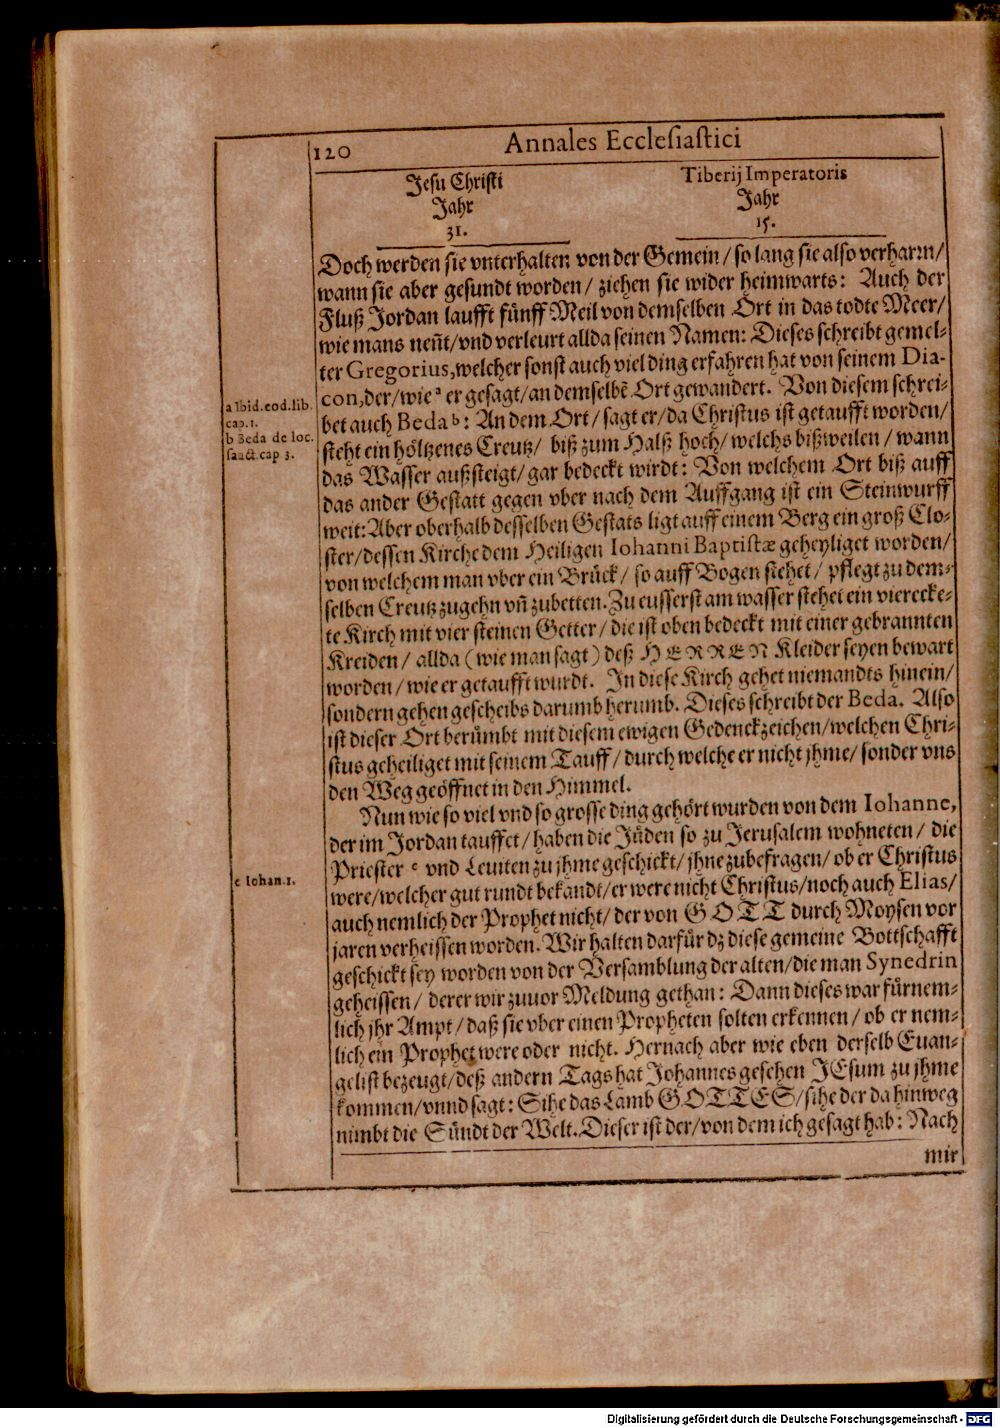 120
Annales Ecclesiastici
Jesu Christi
Jahr
31.
Tiberij Imperatoris
Jahr
15.
Doch werden sie vnterhalten von der Gemein / so lang sie also verharrn /
wann sie aber gesundt worden / ziehen sie wider heimwarts: Auch der
Fluß Jordan laufft fünff Meil von demselben Ort in das todte Meer /
wie mans neñt / vnd verleurt allda seinen Namen: Dieses schreibt gemel-
ter Gregorius, welcher sonst auch viel ding erfahren hat von seinem Dia-
con, der / wie a er gesagt / an demselbẽ Ort gewandert. Von diesem schrei-
bet auch Beda b: An dem Ort / sagt er / da Christus ist getaufft worden /
steht ein höltzenes Creutz / biß zum Halß hoch / welchs bißweilen / wann
das Wasser außsteigt / gar bedeckt wirdt: Von welchem Ort biß auff
das ander Gestatt gegen vber nach dem Auffgang ist ein Steinwurff
weit: Aber oberhalb desselben Gestats ligt auff einem Berg ein groß Clo-
ster / dessen Kirche dem Heiligen Iohanni Baptistæ geheyliget worden /
von welchem man vber ein Brück / so auff Bogen stehet / pflegt zu dem-
selben Creutz zugehn vñ zubetten. Zu eusserst am wasser stehet ein vierecke-
te Kirch mit vier steinen Getter / die ist oben bedeckt mit einer gebrannten
Kreiden / allda (wie man sagt) deß HERREN Kleider seyen bewart
worden / wie er getaufft wurdt. In diese Kirch gehet niemandts hinein /
sondern gehen gescheibs darumb herumb. Dieses schreibt der Beda. Also
ist dieser Ort berümbt mit diesem ewigen Gedenckzeichen / welchen Chri-
stus geheiliget mit seinem Tauff / durch welche er nicht jhme / sonder vns
den Weg geöffnet in den Himmel.
Nun wie so viel vnd so grosse ding gehört wurden von dem Iohanne,
der im Jordan tauffet / haben die Jüden so zu Jerusalem wohneten / die
Priester c vnd Leuiten zu jhme geschickt / jhne zubefragen / ob er Christus
were / welcher gut rundt bekandt / er were nicht Christus / noch auch Elias /
auch nemlich der Prophet nicht / der von GOTT durch Moysen vor
jaren verheissen worden. Wir halten darfür dz diese gemeine Bottschafft
geschickt sey worden von der Versamblung der alten / die man Synedrin
geheissen / derer wir zuuor Meldung gethan: Dann dieses war fürnem-
lich jhr Ampt / daß sie vber einen Propheten solten erkennen / ob er nem-
lich ein Prophet were oder nicht. Hernach aber wie eben derselb Euan-
gelist bezeugt / deß andern Tags hat Johannes gesehen JEsum zu jhme
kommen / vnnd sagt: Sihe das Lamb GOTTES / sihe der da hinweg
nimbt die Sündt der Welt. Dieser ist der / von dem ich gesagt hab: Nach
mir
a Ibid. eod. lib.
cap. 1.
b Beda de loc.
sanct. cap 3.
c Iohan. 1.
Digitalisierung gefördert durch die Deutsche Forschungsgemeinschaft - DFG